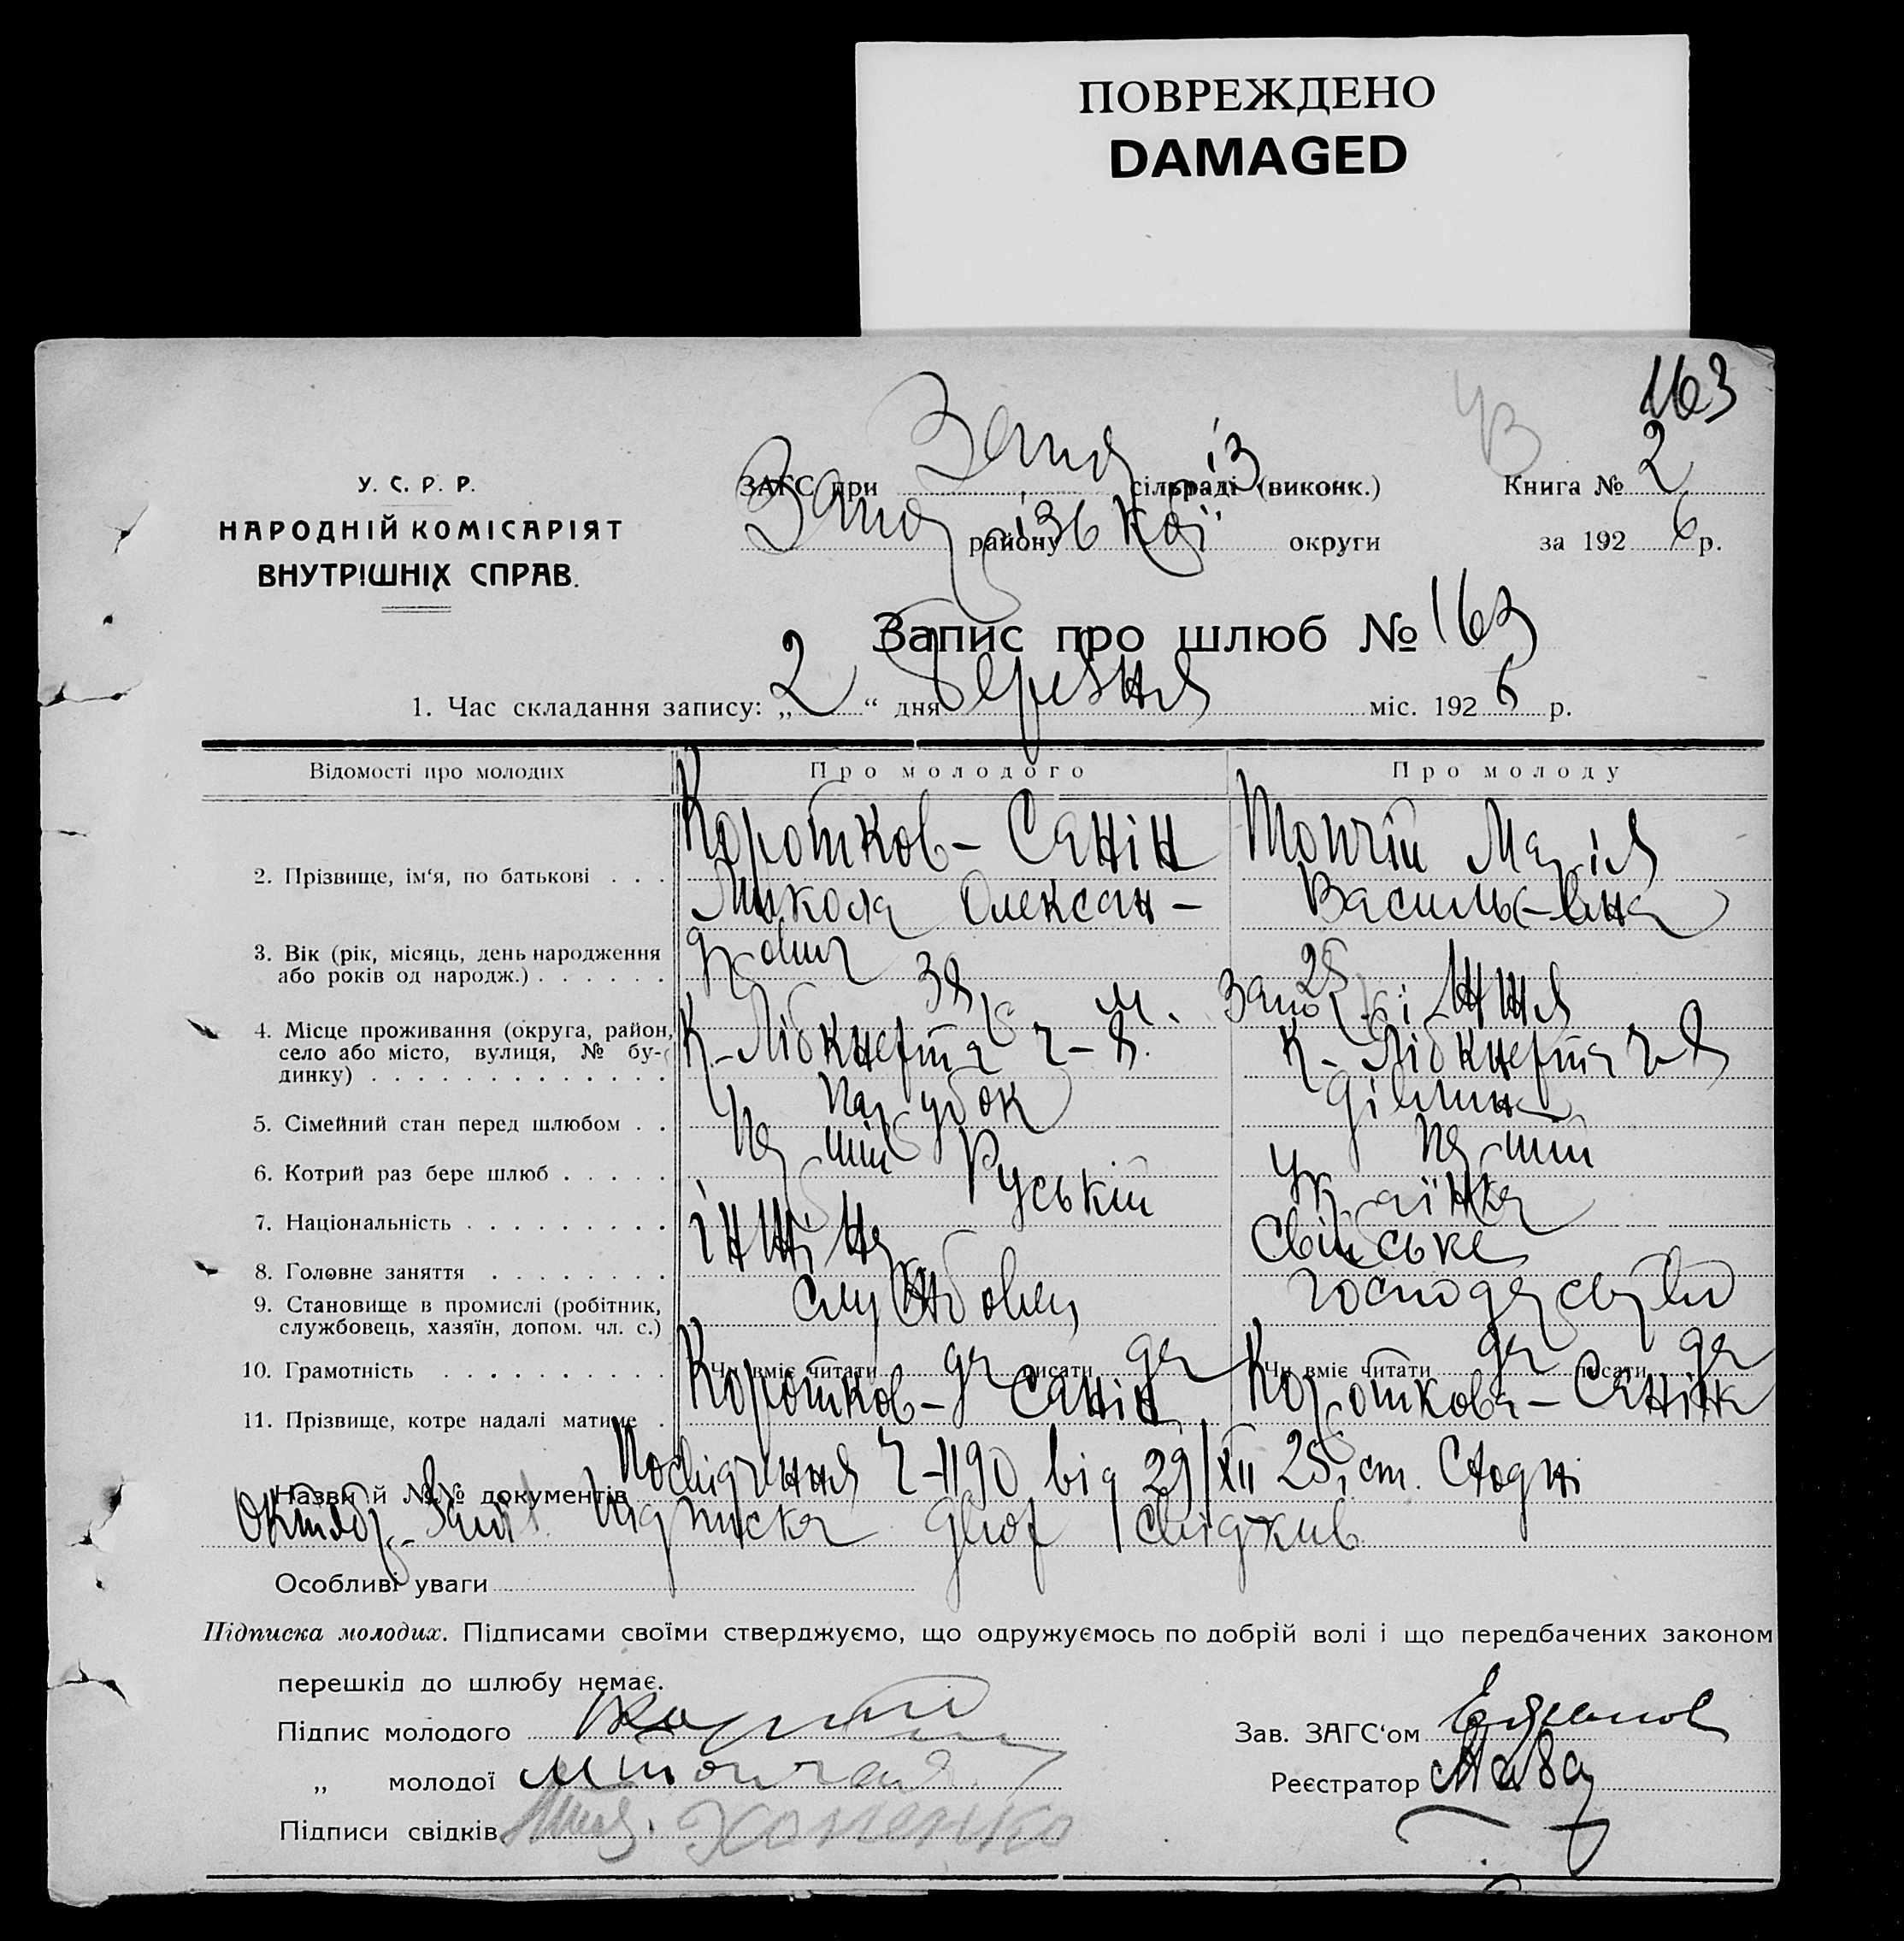 ПОВРЕЖДЕНО
DAMAGED
163
У. С. Р. Р.
НАРОДНІЙ КОМІСАРІЯТ
ВНУТРІШНІХ СПРАВ.
ЗАГС при сільраді (виконк.)
Книга № 2
району округи
за 1926 р.
Запис про шлюб № 163
1. Час складання запису: „2“ дня березня міс. 1926 р.
Відомості про молодих
Про молодого
Про молоду
2. Прізвище, ім‘я, по батькові . . .
Коротков - Санін
Микола Олексан-
дрович
Марія
Василь-вна
3. Вік (рік, місяць, день народження
або років од народж.) . . . . . .
4. Місце проживання (округа, район,
село або місто, вулиця, № бу-
динку) . . . . . . . . . . . . .
м.
К-Лібкнехта
К-Лібкнехта
5. Сімейний стан перед шлюбом . .
Парубок
дівчина
6. Котрий раз бере шлюб . . . . .
Перший
Перший
7. Національність . . . . . . . . .
Руський
Українка
8. Головне заняття . . . . . . . .
інжінер
9. Становище в промислі (робітник,
службовець, хазяїн, допом. чл. с.)
службовец
10. Грамотність . . . . . . . . . .
Чи вміє читати да писати да
Чи вміє читати да писати да
11. Прізвище, котре надалі матиме .
Коротков - Санін
Короткова - Санін
Назви й №№ документів
Посвідчення Ч-1190 від 29/XII 25 ст.
підписка двох свідків
Особливі уваги
Підписка молодих. Підписами своїми стверджуємо, що одружуємось по добрій волі і що передбачених законом
перешкід до шлюбу немає.
Підпис молодого
Зав. ЗАГС‘ом
„ молодої
Реєстратор
Підписи свідків Хоменко